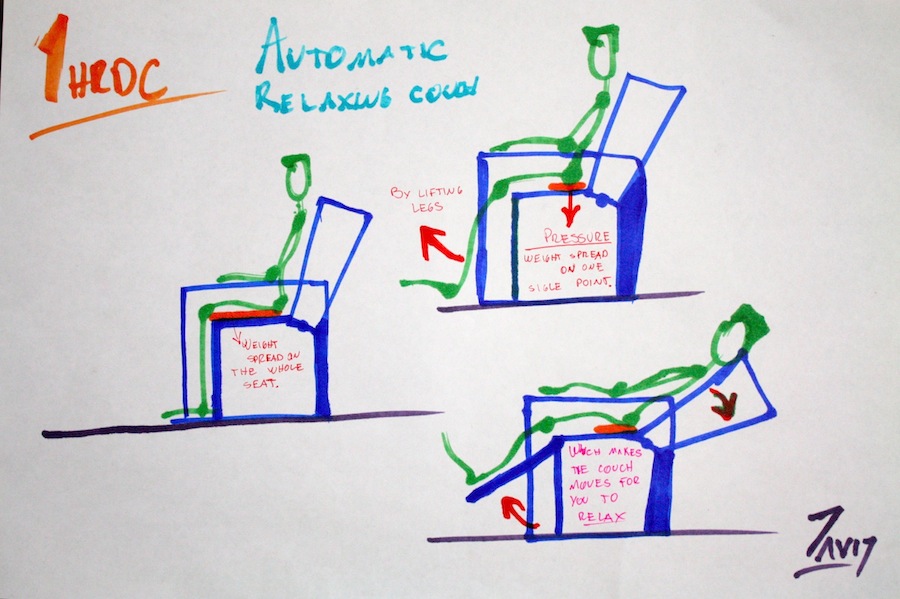 1HRDC
AUTOMATIC
RELAXING COUCH
WEIGHT
SPREAD ON
THE WHOLE
SEAT.
BY LIFTING
LEGS
PRESSURE
WEIGHT SPREAD
ON ONE
SIGLE POINT.
WHCH MAKES
THE COUCH
MOVES FOR
YOU TO
RELAX